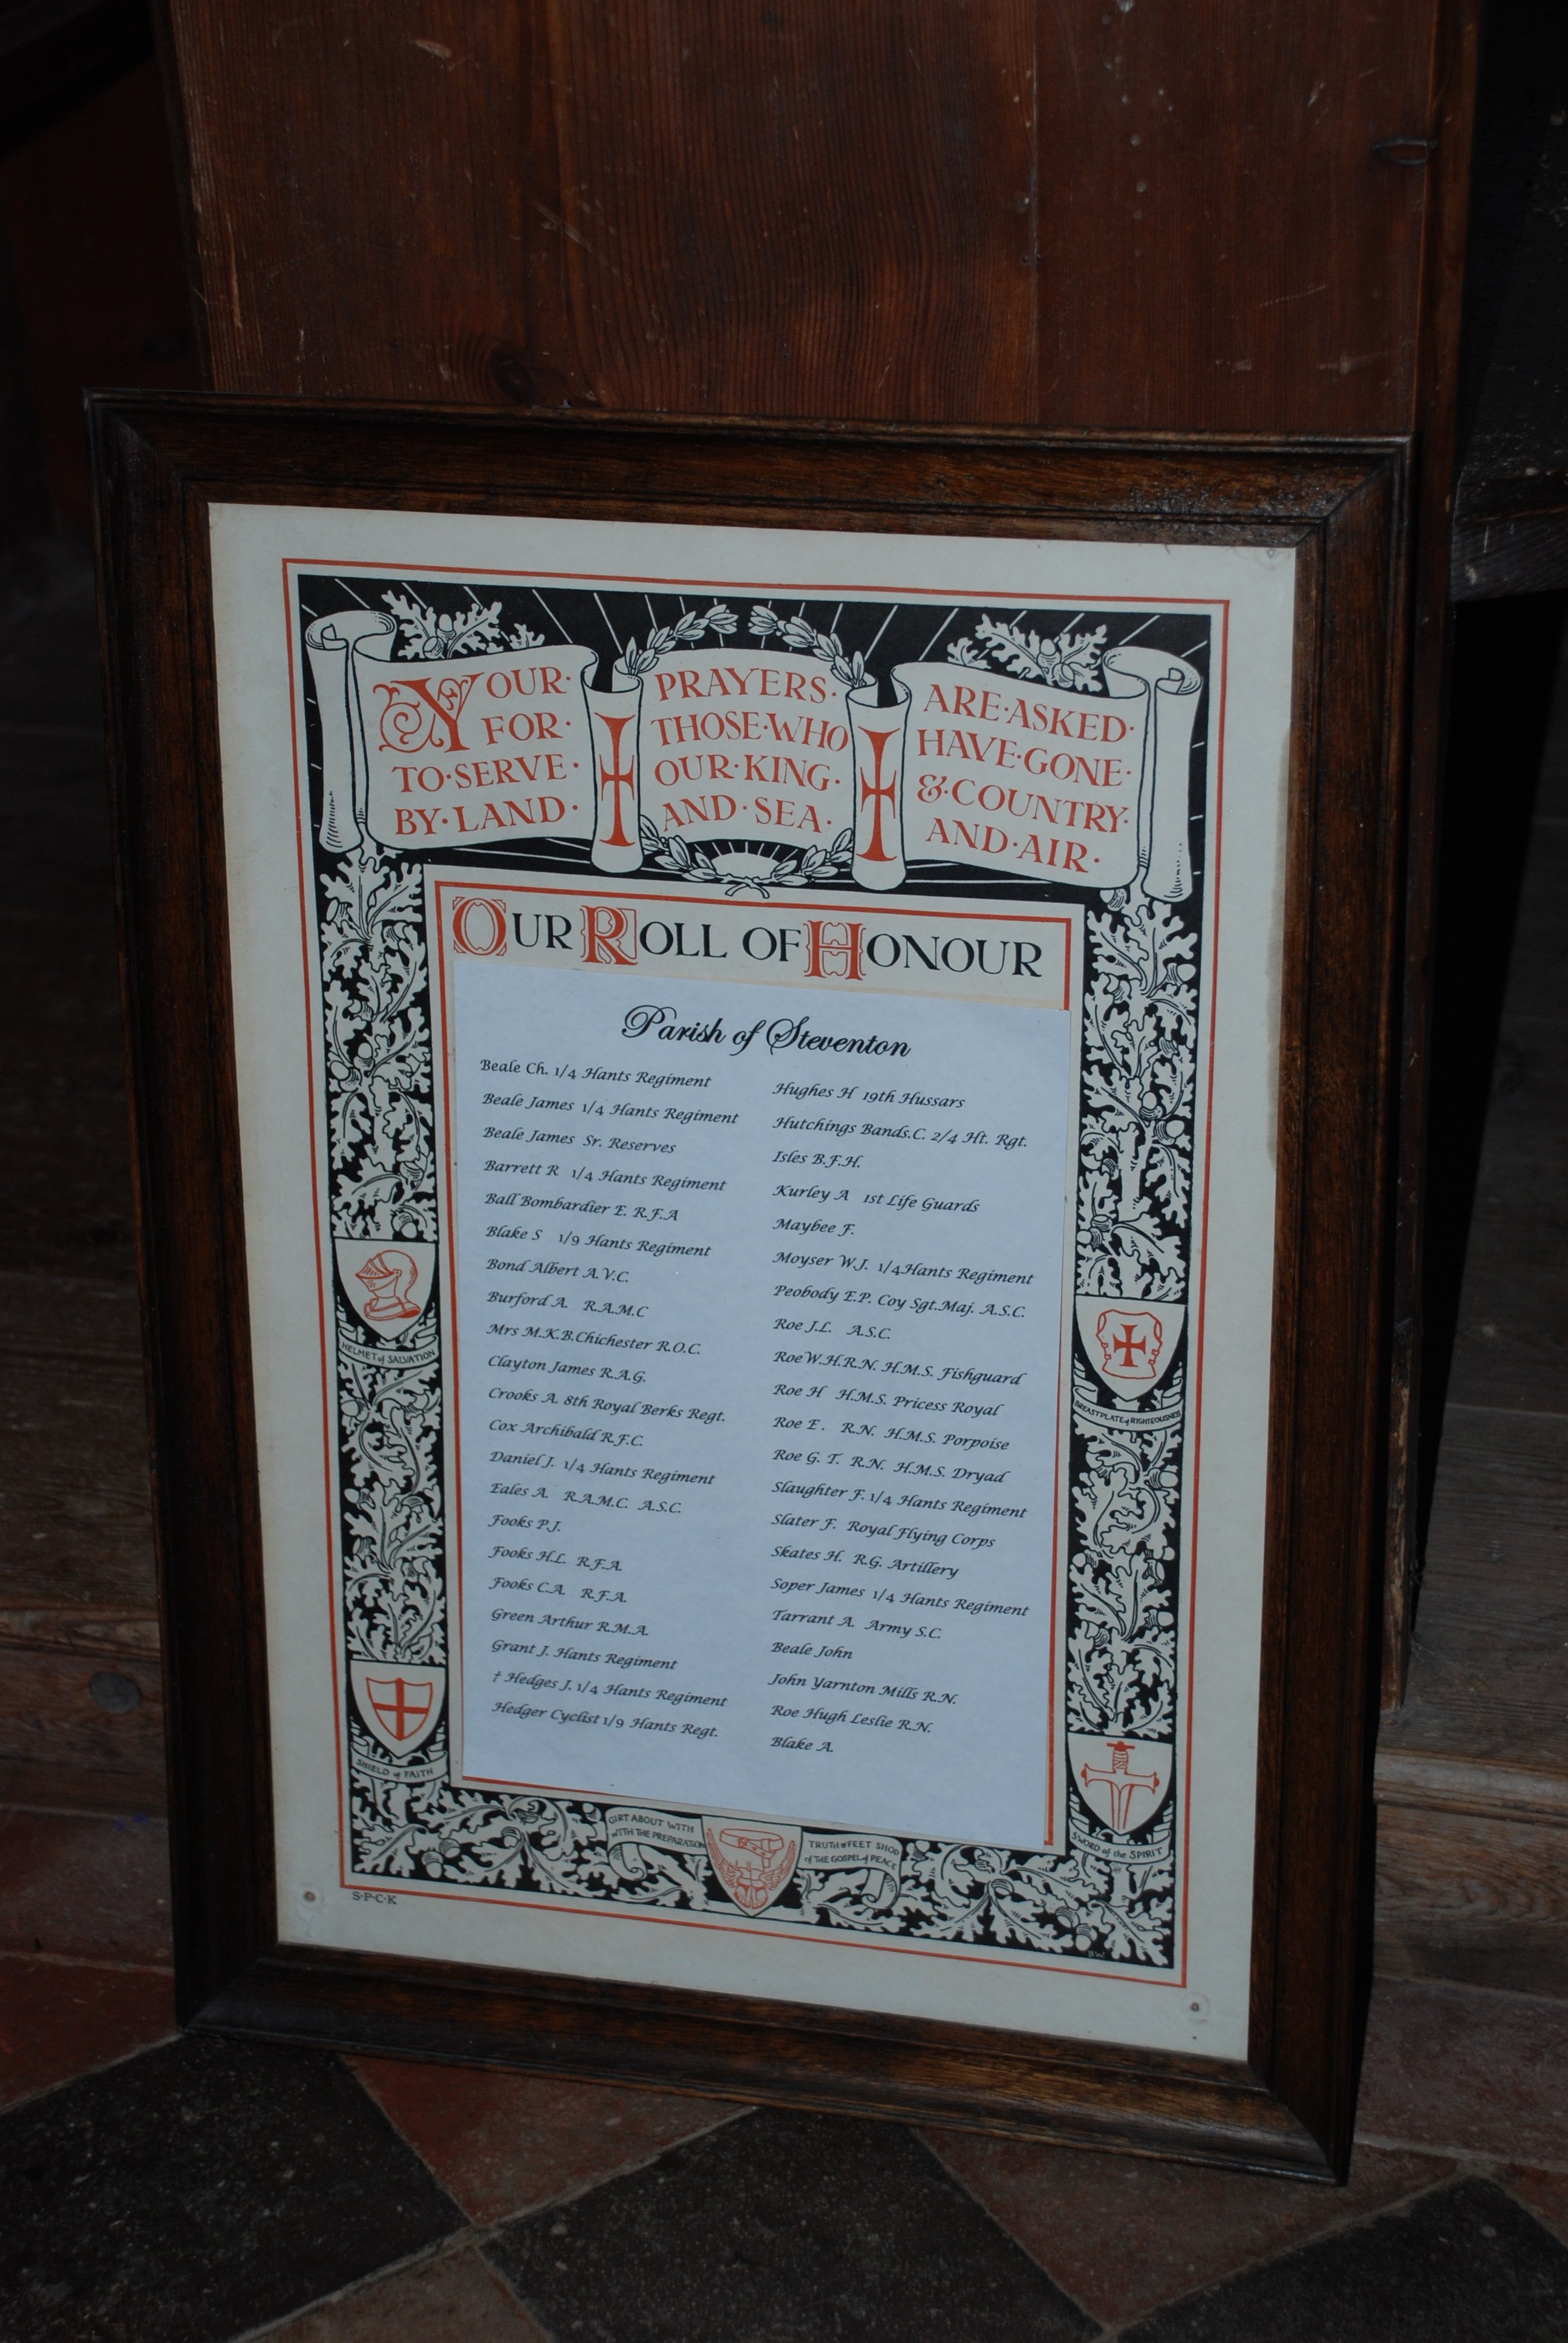 YOUR· PRAYERS· ARE·ASKED·
FOR· THOSE·WHO HAVE·GONE·
TO·SERVE· OUR·KING· &·COUNTRY·
BY·LAND· AND·SEA· AND·AIR·
OUR ROLL OF HONOUR
Parish of Steventon
Beale Ch. 1/4 Hants Regiment
Beale James 1/4 Hants Regiment
Beale James Sr. Reserves
Barrett R 1/4 Hants Regiment
Ball Bombardier E. R.F.A
Blake S 1/9 Hants Regiment
Bond Albert A.V.C.
Burford A. R.A.M.C
Mrs M.K.B.Chichester R.O.C.
Clayton James R.A.G.
Crooks A. 8th Royal Berks Regt.
Cox Archibald R.F.C.
Daniel J. 1/4 Hants Regiment
Eales A. R.A.M.C. A.S.C.
Fooks P.J.
Fooks H.L. R.F.A.
Fooks C.A. R.F.A.
Green Arthur R.M.A.
Grant J. Hants Regiment
† Hedges J. 1/4 Hants Regiment
Hedger Cyclist 1/9 Hants Regt.
Hughes H 19th Hussars
Hutchings Bands.C. 2/4 Ht. Rgt.
Isles B.F.H.
Kurley A 1st Life Guards
Maybee F.
Moyser W.J. 1/4Hants Regiment
Peobody E.P. Coy Sgt.Maj. A.S.C.
Roe J.L. A.S.C.
Roe W.H.R.N. H.M.S. Fishguard
Roe H H.M.S. Pricess Royal
Roe E. R.N. H.M.S. Porpoise
Roe G. T. R.N. H.M.S. Dryad
Slaughter F. 1/4 Hants Regiment
Slater F. Royal Flying Corps
Skates H. R.G. Artillery
Soper James 1/4 Hants Regiment
Tarrant A. Army S.C.
Beale John
John Yarnton Mills R.N.
Roe Hugh Leslie R.N.
Blake A.
HELMET of SALVATION
BREASTPLATE of RIGHTEOUSNESS
SHIELD of FAITH
SWORD of the SPIRIT
GIRT ABOUT WITH TRUTH & FEET SHOD
WITH THE PREPARATION of THE GOSPEL of PEACE
S·P·C·K
B.W.